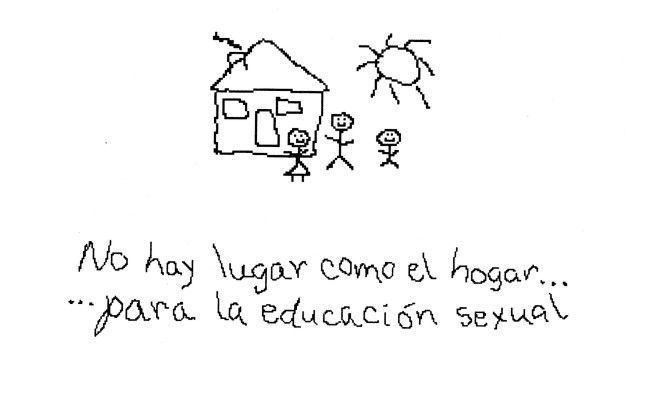 No hay lugar como el hogar...
...para la educación sexual